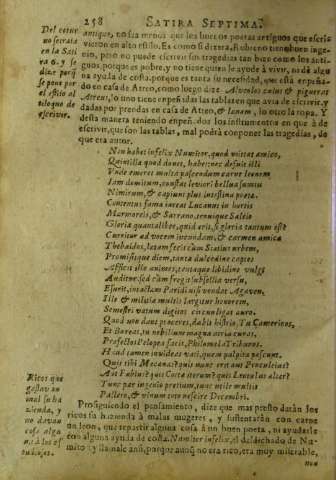 258 SATIRA SEPTIMA.
Del cotur
no se trata
en la Sati
ra 6. y se
dize porq̃
se pone por
el estilo al
de
escriuir.
antiguo, no sea menos que los buenos poetas antiguos que escri
uieron en alto estilo. Es como si dixera, si
cio, pero no puede escriuir sus tragedias tan bien como los anti-
guos, porque es pobre, y no tiene quien le ayude à viuir, ni dè algu
na ayuda de costa, porque es tanta su necesidad, que està empeña-
do en casa de Atreo, como luego dize Alueolos eius & pignerat
Atreus, lo uno tiene empeñadas las tablas en que auia de escriuir,
dadas por prendas en casa de Atreo, & laenam, lo otro la ropa. Y
desta manera teniendo empeñados los instrumentos en que à de
escriuir, que son las tablas, mal podrà componer las tragedias, de
que era autor.
Non habet infelix Numitor, quod mittat amico,
Quintilla quod donet, habet: nec defuit illi
Vnde emeret multa pascendum carne leonem
Iam domitum, constat leuiori bellua sumtu
Nimirum, & capiunt plus intestina poetae.
Contentus fama iaceat Lucanus in hortis
Marmoreis, & Sarrano, tenuique Saleio
Gloria quantalibet, quid erit, si gloria tantum est?
Curritur ad vocem iucundam, & carmen amicae
Thebaidos, laetam fecit cùm Statius urbem,
Promisitque diem, tanta dulcedine captos
Afficit ille animos, tantaque libidine vulgi
Auditur: sed cùm fregit subsellia versu,
Esurit, intactam Paridi nisi vendat Agauen.
Ille & militiae multis largitur honorem,
Semestri vatum digitos circunligat auro.
Quod non dant proceres, dabit histrio, Tu Camerinos,
Et Bareas, tu nobilium magna atria curas,
Praefectos Pelopea facit, Philomela Tribunos.
Haud tamen inuideas vati, quem pulpita pascunt.
Quis tibi Mecoenas? quis nunc erit aut Proculeius?
Aut Fabius? quis Cotta iterum? quis Lentulus alter?
Tunc par ingenio pretium, tunc utile multis
Pallere, & vinum toto nescire Decembri.
Ricos que
gastauan
mal su ha
zienda, y
no dauan
cosa algu
na à los
Prosiguiendo el pensamiento, dize que mas presto daràn los
ricos su hazienda à malas mugeres, y sustentaràn con carne
un leon, que repartir alguna cosa à un buen poeta, ni ayudarle
con alguna ayuda de costa. Numitor infelix, el desdichado de Nu-
mitor y llamale ansi, porque aunque no era rico, era muy miserable,